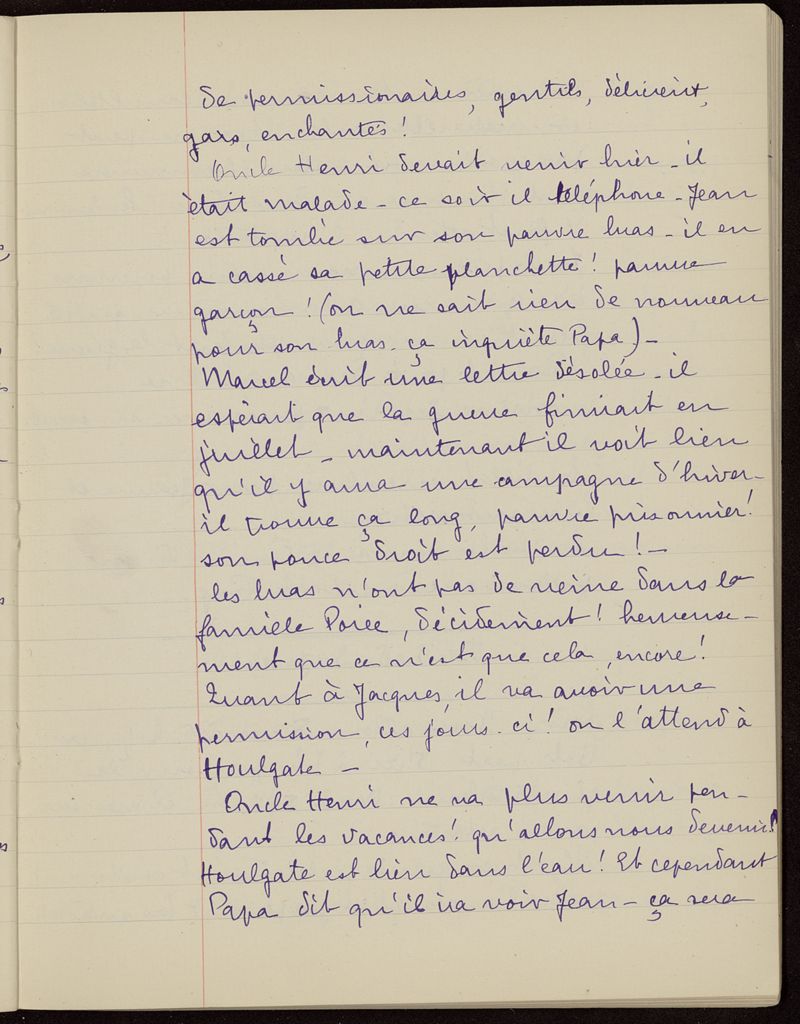 de permissionaires, gentils,
gars, enchantés!
Oncle Henri devait venir hier - il
était malade - ce soir il téléphone - Jean
est tombé sur son pauvre bras - il en
a cassé sa petite planchette! pauvre
garçon! (on ne sait rien de nouveau
pour son bras. ça inquiète Papa) -
Marcel écrit une lettre désolée - il
espérait que la guerre finirait en
juillet - maintenant il voit bien
qu'il y aura une campagne d'hiver -
il trouve ça long, pauvre prisonnier!
son pouce droit est perdu! -
les bras n'ont pas de veine dans la
famille Poirée, décidément! heureuse-
ment que ce n'est que cela, encore!
Quant à Jacques, il va avoir une
permission, ces jours-ci! on l'attend à
Houlgate -
Oncle Henri ne va plus venir pen-
dant les vacances! qu'allons nous devenir!
Houlgate est bien dans l'eau! Et cependant
Papa dit qu'il ira voir Jean - ça sera